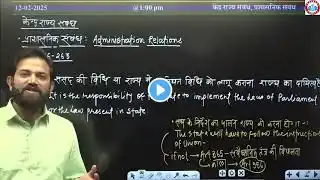 12-02-2025
@1:00 pm
केंद्र राज्य संबंध, प्रशासनिक संबंध
केन्द्र राज्य संबंध
प्रशासनिक संबंध: Administration Relations
-263
संसद की विधि या राज्य में विधि को लागू करना राज्य का दायित्व
It is the responsibility of state to implement the laws of Parliament
or the law present in State
संघ के निर्देश का पालन राज्यों को करना होगा :-
The state will have to follow the instructions
of Union-
if not → Art 365 → संवैधानिक तंत्र की विफलता
Art 356